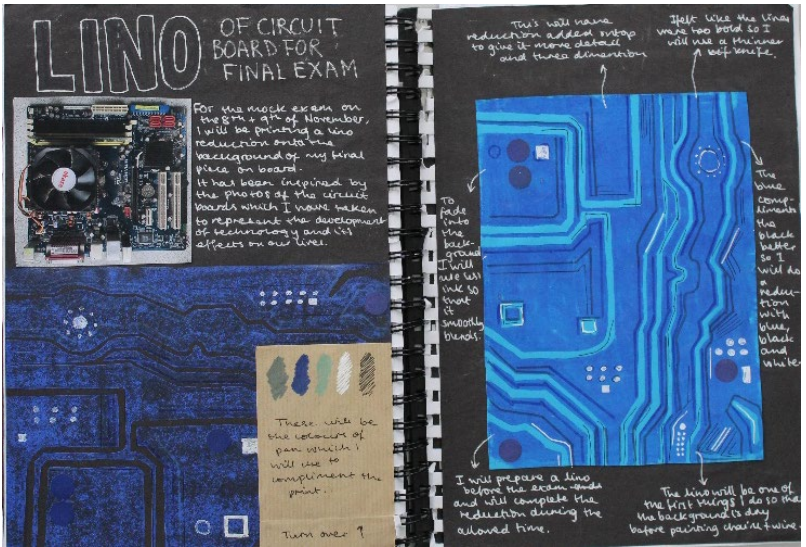 LINO
OF CIRCUIT
BOARD FOR
FINAL EXAM
For the mock exam on
the 8th + 9th of November,
I will be printing a lino
reduction onto the
background of my final
piece on board.
It has been inspired by
the photos of the circuit
boards which I have taken
to represent the development
of technology and it's
effects on our lives.
These will be
the colours of
pen which I
will use to
compliment the
print.
Turn over
This will have
reduction added ontop
to give it more detail
and three dimension
I felt like the lines
were too bold so I
will use a thinner
knife.
To
fade
into
the
back-
ground
I will
use less
ink so
that
it
smoothly
blends.
The
blue
comp-
liments
the
black
better
so I
will do
a
reduc-
tion
with
blue,
black
and
white
I will prepare a lino
before the exam
and will complete the
reduction during the
allowed time.
The lino will be one of
the first things I do so that
the background is dry
before painting chair + wire